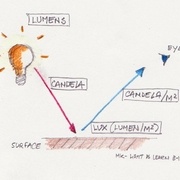 LUMENS
EYE
CANDELA
CANDELA/M²
LUX (LUMEN/M²)
SURFACE